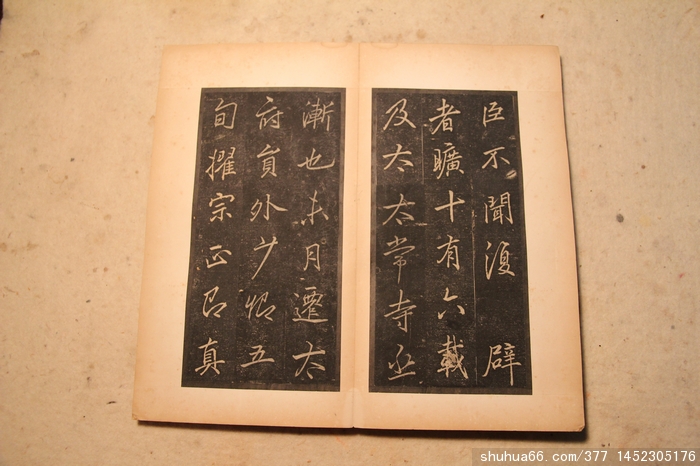 臣不聞復辟
者曠十有六載
及太太常寺丞
漸也未月遷太
府負外少卿五
旬擢宗正即真
shuhua66.com/377 1452305176